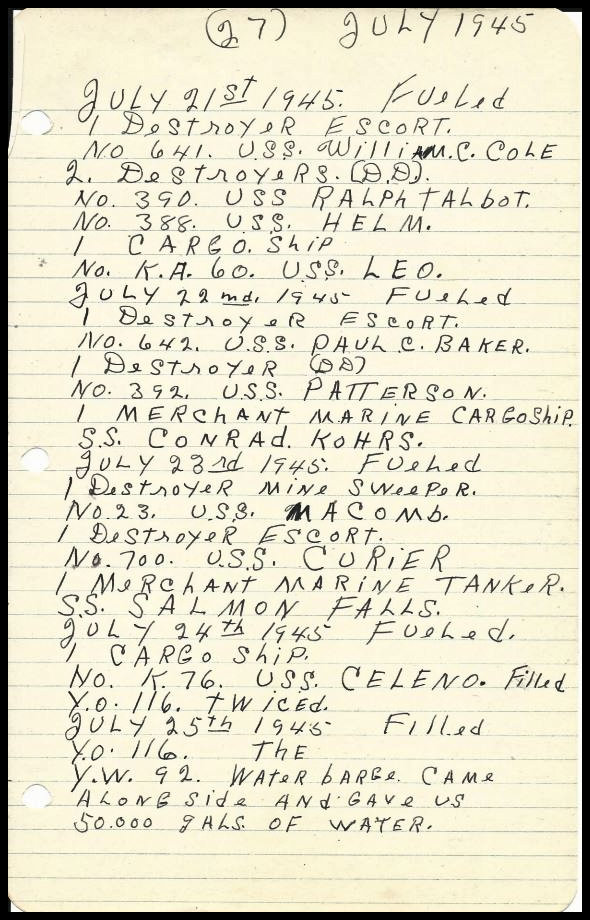 (27) JULY 1945
JULY 21st 1945. Fueled
1 DestroyeR ESCORT.
No 641. U.S.S. WilliAM.C. COLE
2. DestroyeRS. (D.D).
No. 390. USS RALPh TALbot.
No. 388. U.S.S. HELM.
1 CARGO. Ship
No. K.A. 60. USS. LEO.
JULY 22md. 1945 Fueled
1 DestroyeR ESCORT.
No. 642. U.S.S. PAUL.C. BAKER.
1 DestroyeR (DD)
No. 392. U.S.S. PATTERSON.
1 MERChANT MARINE CARGOShiP.
S.S. CONRAd. KOHRS.
JULY 23rd 1945. Fueled
1 DestroyeR MINe SWeePeR.
No. 23. U.S.S. MACOMb.
1 DestroyeR ESCORT.
No. 700. U.S.S. CURiER
1 MeRChANT MARINE TANKeR.
S.S. SALMON FALLS.
JULY 24th 1945 Fueled.
1 CARGO ShiP.
No. K. 76. USS. CELENO. Filled
Y.O. 116. TWiCEd.
JULY 25th 1945 Filled
Y.O. 116. The
Y.W. 92. WATeR bARGe. CAMe
ALONG Side ANd GAVe US
50.000 gALS. OF WATeR.